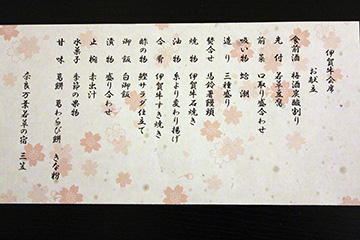 伊賀牛会席
お献立
食前酒 梅酒炭酸割り
先付 若草豆腐
前菜 口取り盛合わせ
吸い物 蛤 潮
造り 三種盛り
焚合せ 馬鈴薯饅頭
焼物 伊賀牛石焼き
油物 糸より変わり揚げ
合肴 伊賀牛すき焼き
酢の物 鰹サラダ仕立て
御飯 白御飯
漬物 盛り合わせ
止椀 赤出汁
水菓子 季節の果物
甘味 葛餅 葛わらび餅 きな粉
奈良万葉若草の宿 三笠